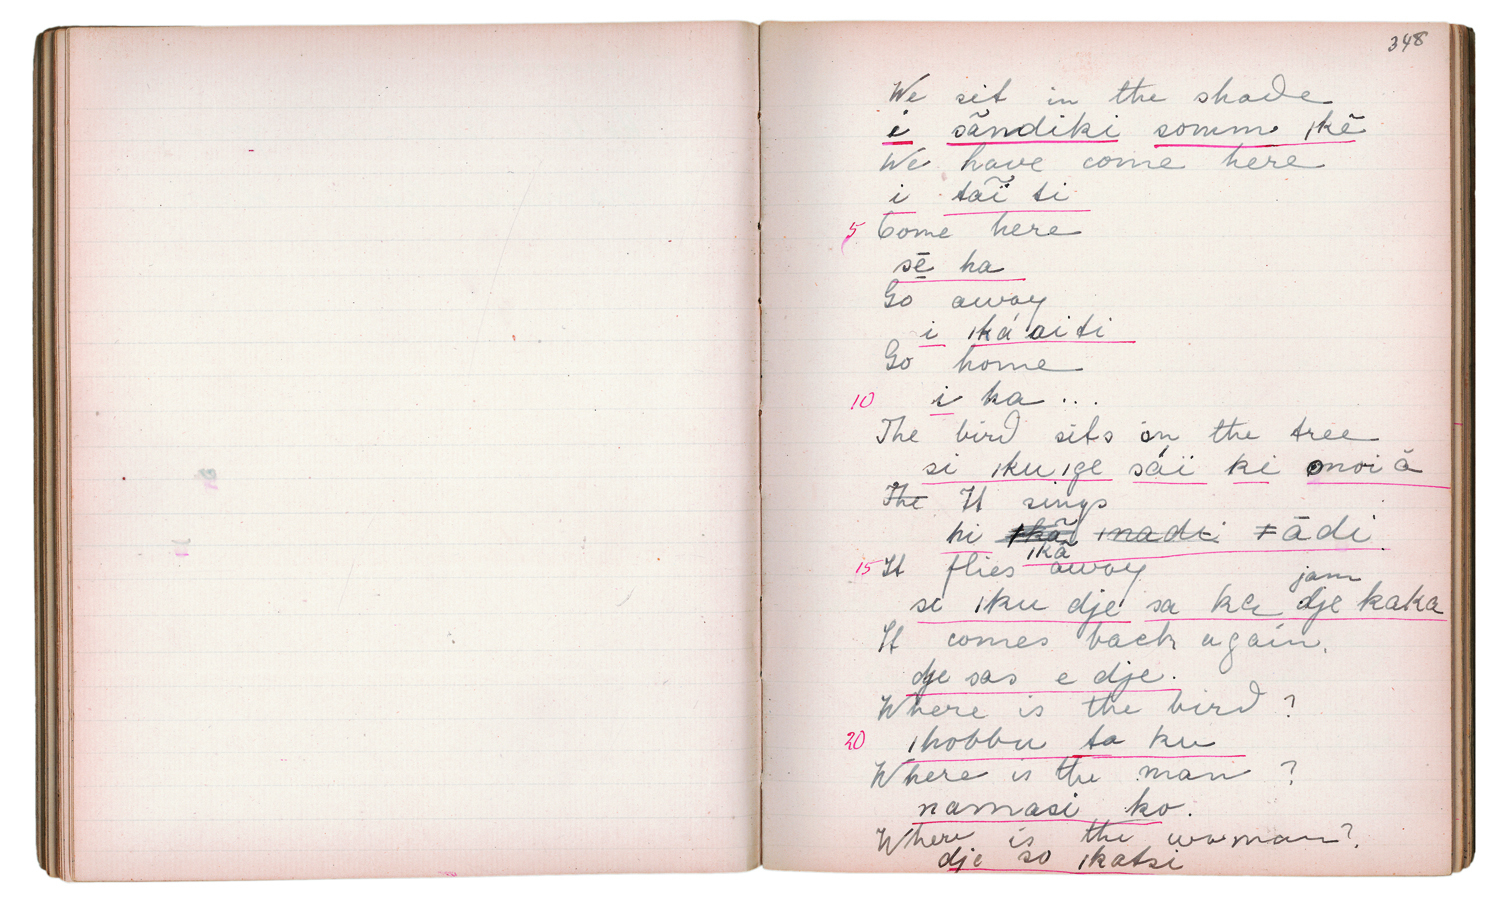 348
We sit in the shade
i sãndiki somm ǀkē
We have come here
i taĩ ti
5 Come here
sē ha
Go away
i ǀká aiti
Go home
10 i ha ...
The bird sits on the tree
si ǀkuǀge sáï ki noi ā
The It sings
hi ǀkã ǀnadi ǂādi
ǀkã
15 It flies away
jam
si ǀku dje sa ka dje kaka
It comes back again.
dje sas e dje.
Where is the bird?
20 ǀhobbu ta ku
Where is the man?
namasi ko.
Where is the woman?
dje so ǀkatsi